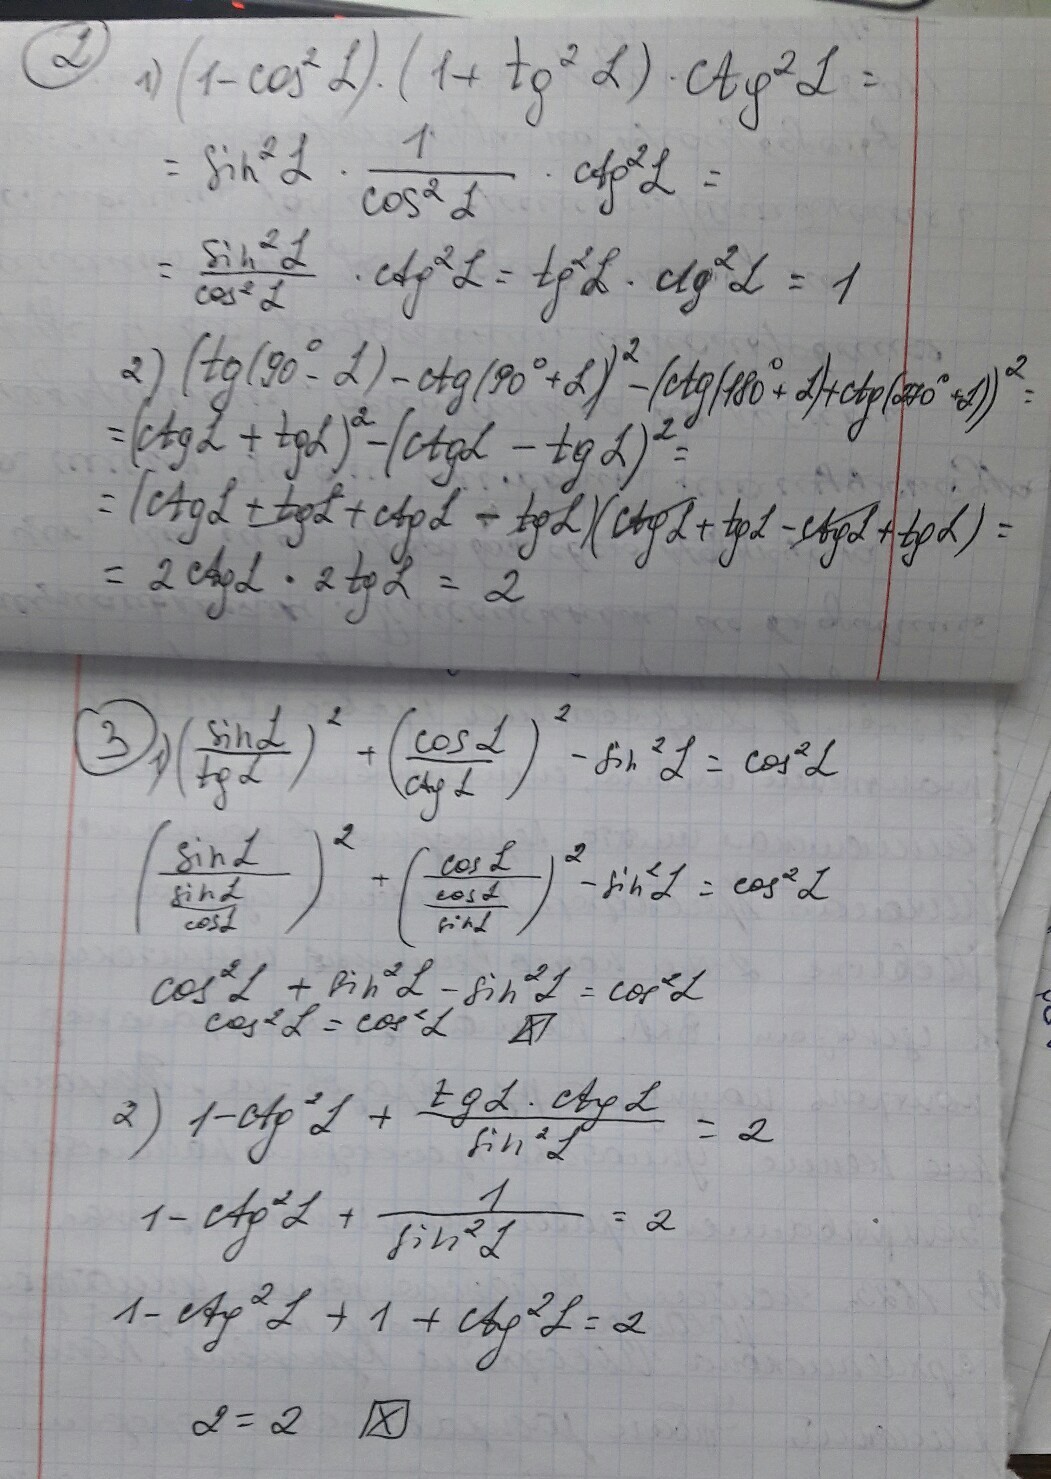 2
1) (1 - cos² α) · (1 + tg² α) · ctg² α =
= sin² α · 1/cos² α · ctg² α =
= sin² α / cos² α · ctg² α = tg² α · ctg² α = 1
2) (tg(90° - α) - ctg(90° + α))² - (ctg(180° + α) + ctg(270° + α))² =
= (ctg α + tg α)² - (ctg α - tg α)² =
= (ctg α + tg α + ctg α - tg α)(ctg α + tg α - ctg α + tg α) =
= 2 ctg α · 2 tg α = 2
3 1) (sin α / tg α)² + (cos α / ctg α)² - sin² α = cos² α
(sin α / (sin α / cos α))² + (cos α / (cos α / sin α))² - sin² α = cos² α
cos² α + sin² α - sin² α = cos² α
cos² α = cos² α
2) 1 - ctg² α + (tg α · ctg α) / sin² α = 2
1 - ctg² α + 1 / sin² α = 2
1 - ctg² α + 1 + ctg² α = 2
2 = 2